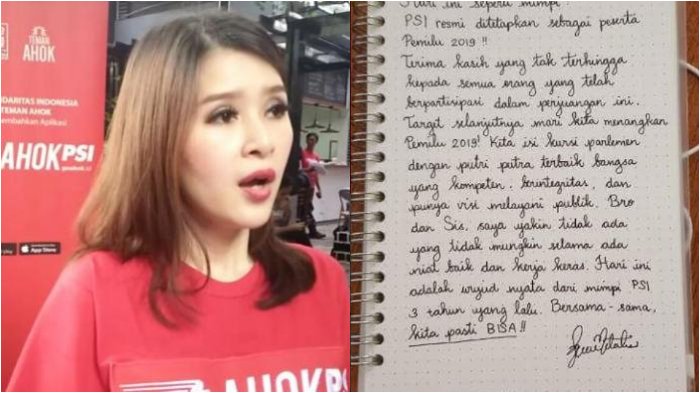 TEMAN
AHOK
IDARITAS INDONESIA
TEMAN AHOK
embahkan Aplikasi
AHOKPSI
App Store
AHOKPS
Hari ini seperti mimpi
PSI resmi ditetapkan sebagai peserta
Pemilu 2019 !!
Terima kasih yang tak terhingga
kepada semua orang yang telah
berpartisipasi dalam perjuangan ini.
Target selanjutnya mari kita menangkan
Pemilu 2019! Kita isi kursi parlemen
dengan putri putra terbaik bangsa
yang kompeten, berintegritas, dan
punya visi melayani publik. Bro
dan Sis, saya yakin tidak ada
yang tidak mungkin selama ada
niat baik dan kerja keras. Hari ini
adalah wujud nyata dari mimpi PSI
3 tahun yang lalu. Bersama-sama,
kita pasti BISA!!